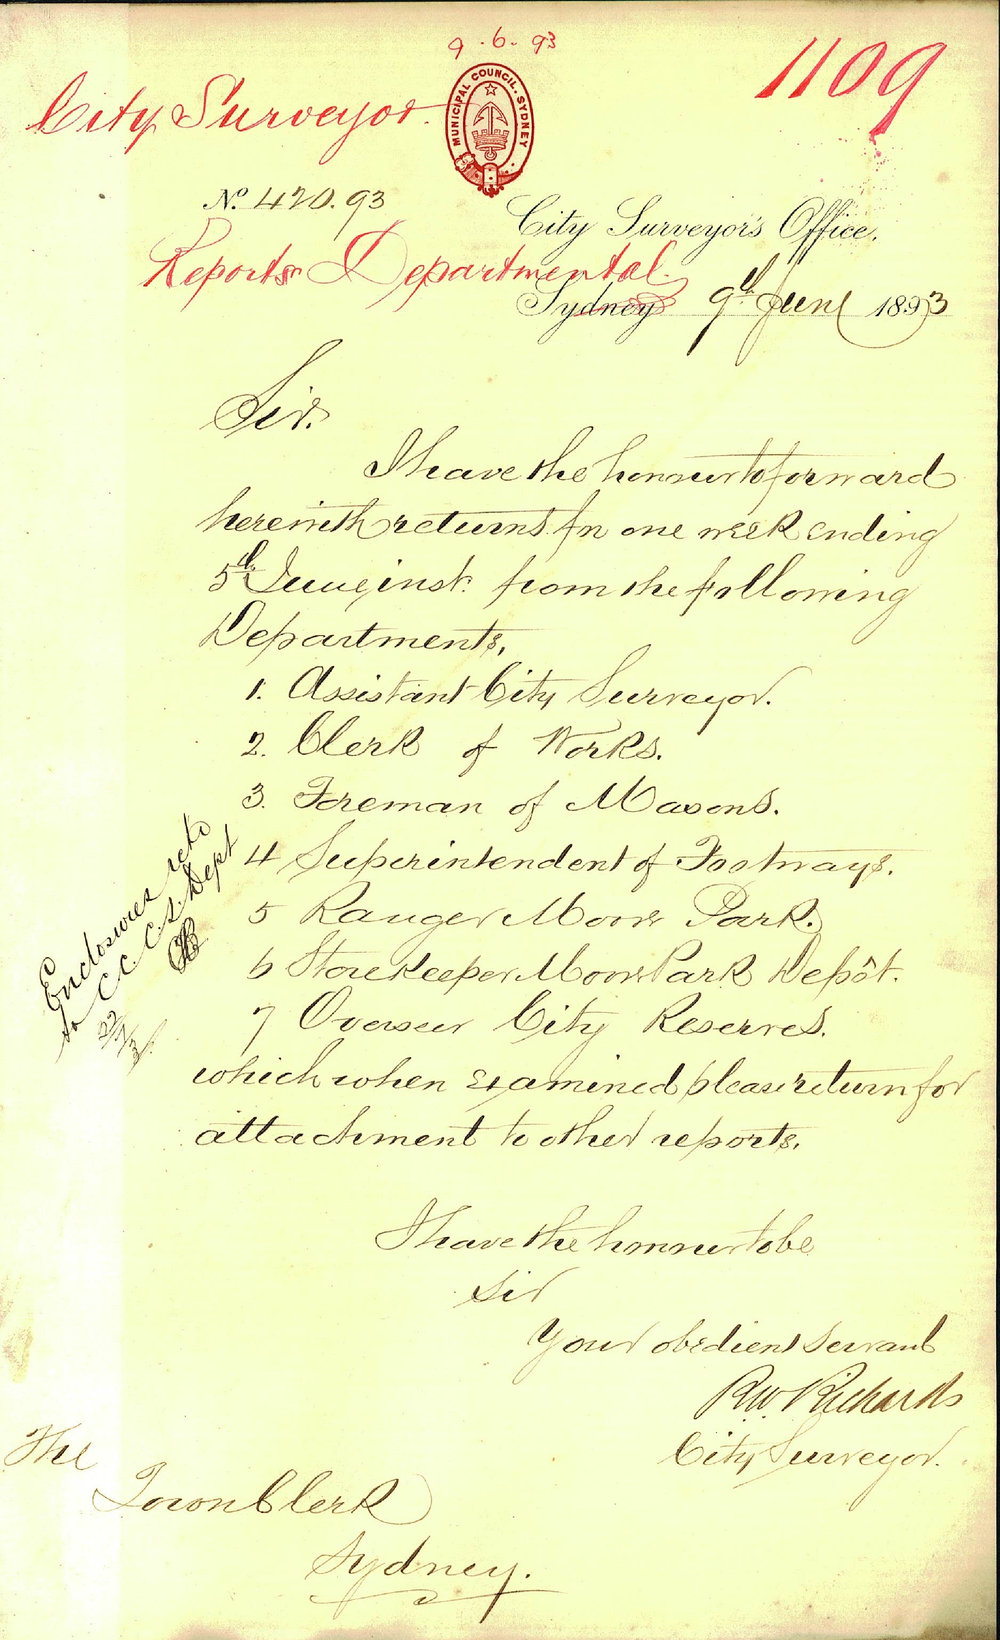 9.6.93
1109
City Surveyor.
MUNICIPAL COUNCIL. SYDNEY
No. 420.93
City Surveyor's Office,
Reports Departmental.
Sydney 9th June 1893
Sir.
I have the honour to forward
herewith returns for one week ending
5th June inst. from the following
Departments,
1. Assistant City Surveyor.
2. Clerk of Works.
3. Foreman of Masons.
4 Superintendent of Footways.
5 Ranger Moore Park.
6 Storekeeper Moore Park Depôt.
7 Overseer City Reserves.
which when examined please return for
attachment to other reports.
Enclosures retd
to C C C S. Dept
I have the honour to be
Sir
Your obedient servant
R.W. Richards
City Surveyor.
The
Town Clerk
Sydney.